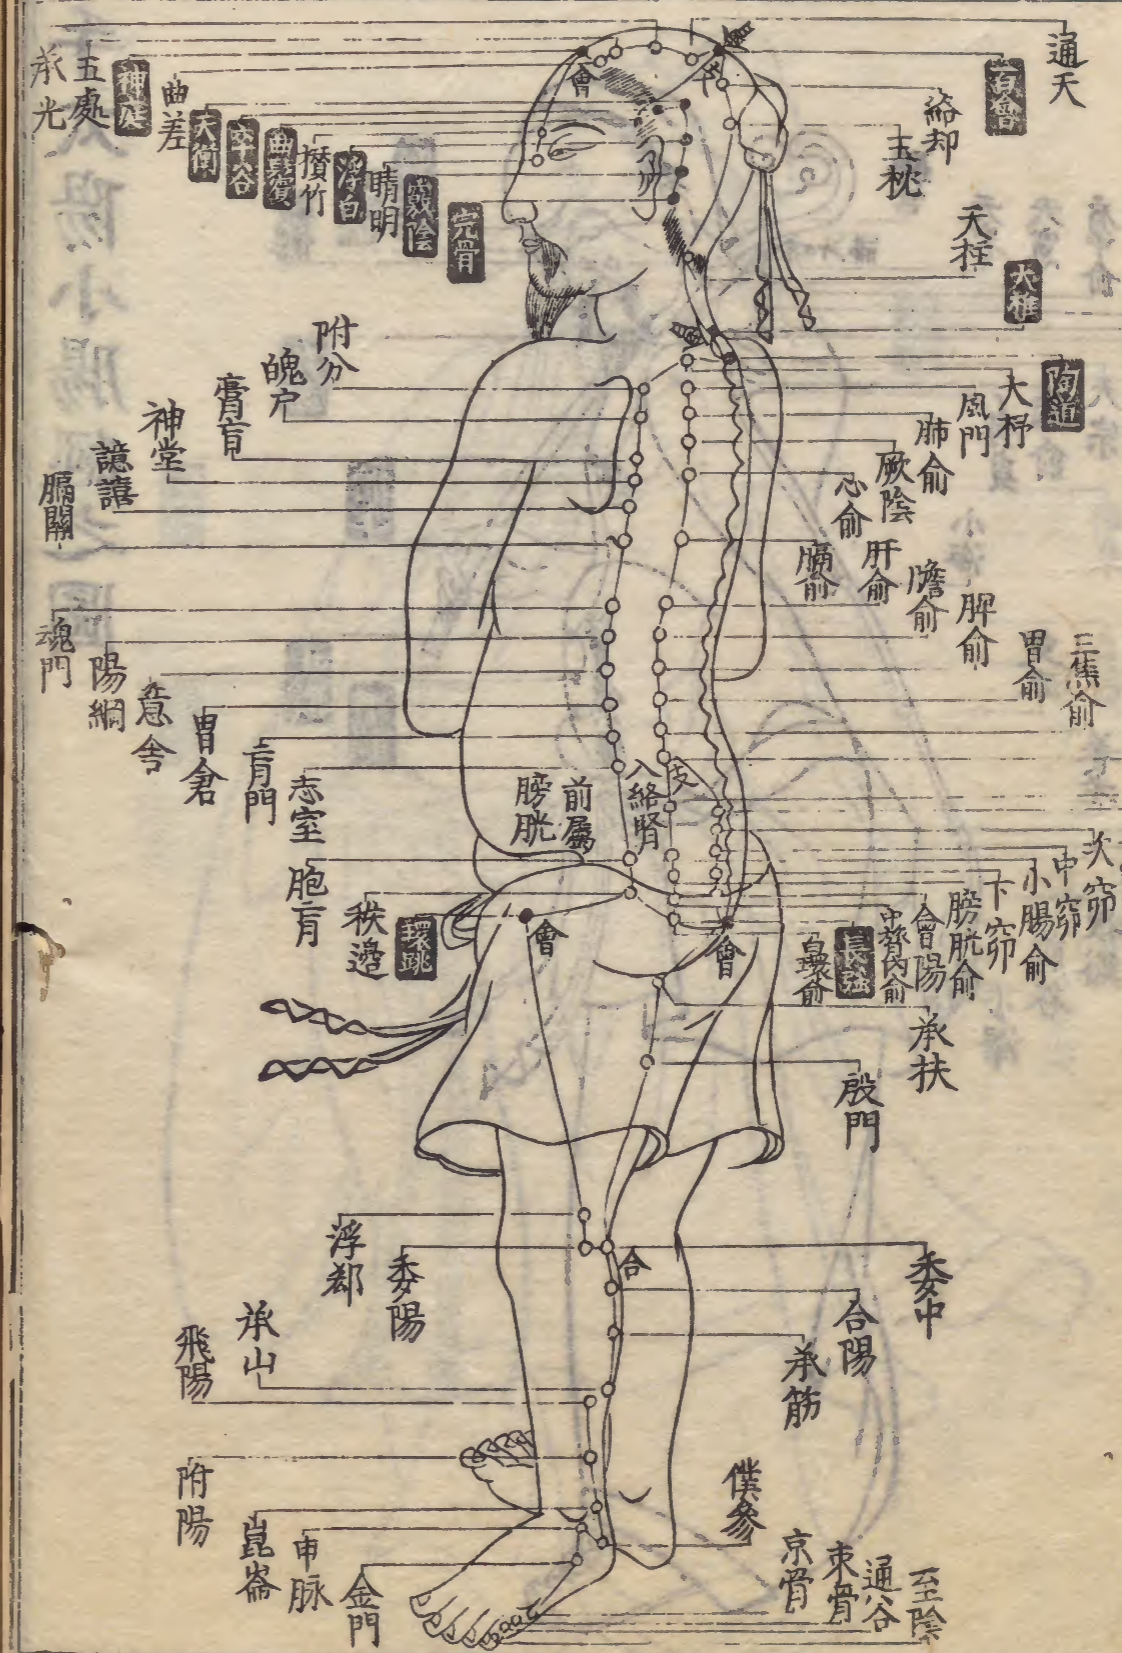 通天
百會
絡却
玉枕
天柱
大椎
陶道
大杼
風門
肺俞
厥陰
心俞
膈俞
肝俞
膽俞
脾俞
胃俞
三焦俞
次窌
中窌
小腸俞
下窌
膀胱俞
會陽
中膂内俞
長強
白環俞
承扶
殷門
委中
合陽
承筋
僕參
京骨
束骨
通谷
至陰
承光
五處
神庭
曲差
天衝
率谷
曲鬢
攅竹
浮白
睛明
竅陰
完骨
附分
魄户
膏肓
神堂
譩譆
膈關
魂門
陽綱
意舎
胃倉
肓門
志室
胞肓
秩邉
環跳
前屬
膀胱
入絡腎
支
會
會
會
合
浮郄
委陽
承山
飛陽
附陽
崑崙
申脉
金門